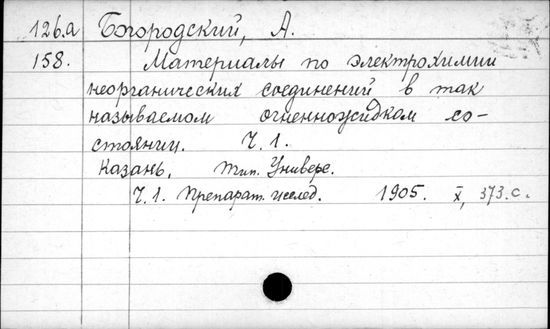 126.а Богородский, А.
158. Материалы по электрохимии
неорганических соединений в так
называемом огненножидком со-
стоянии. Ч. 1.
Казань, Тип. Универс.
Ч. 1. Препарат. исслед. 1905. X, 373.с.